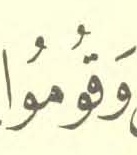 وَقُومُوا